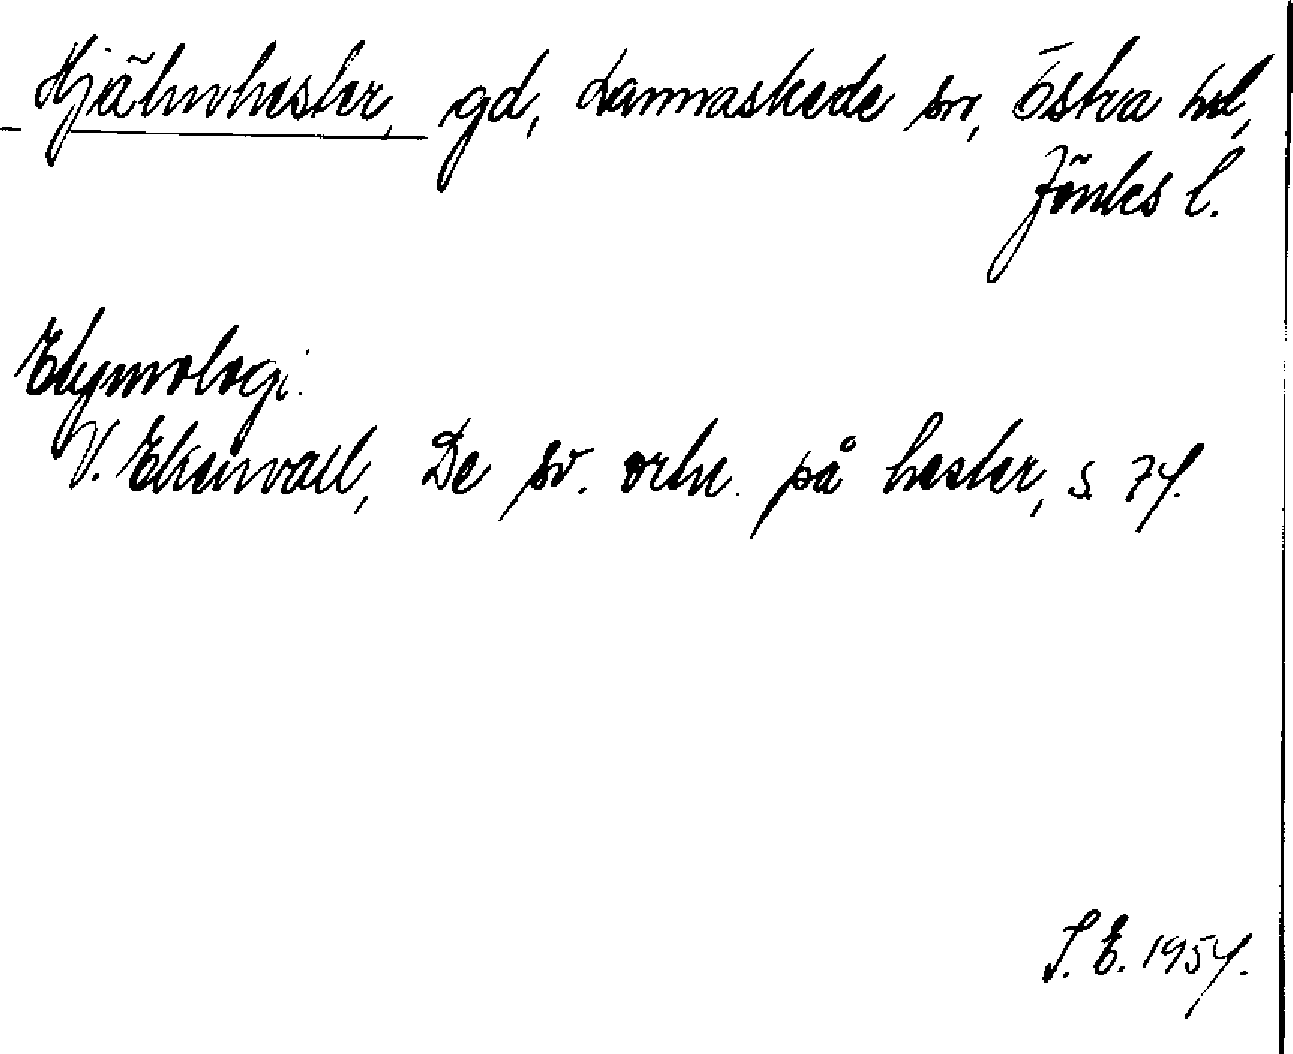 Hjälmhester, gd, Lannaskede sn, Östra hd,
Jönks l.
Etymologi.
V. Ekenvall, De sv. ortn. på hester, s. 74.
S. E. 1954.